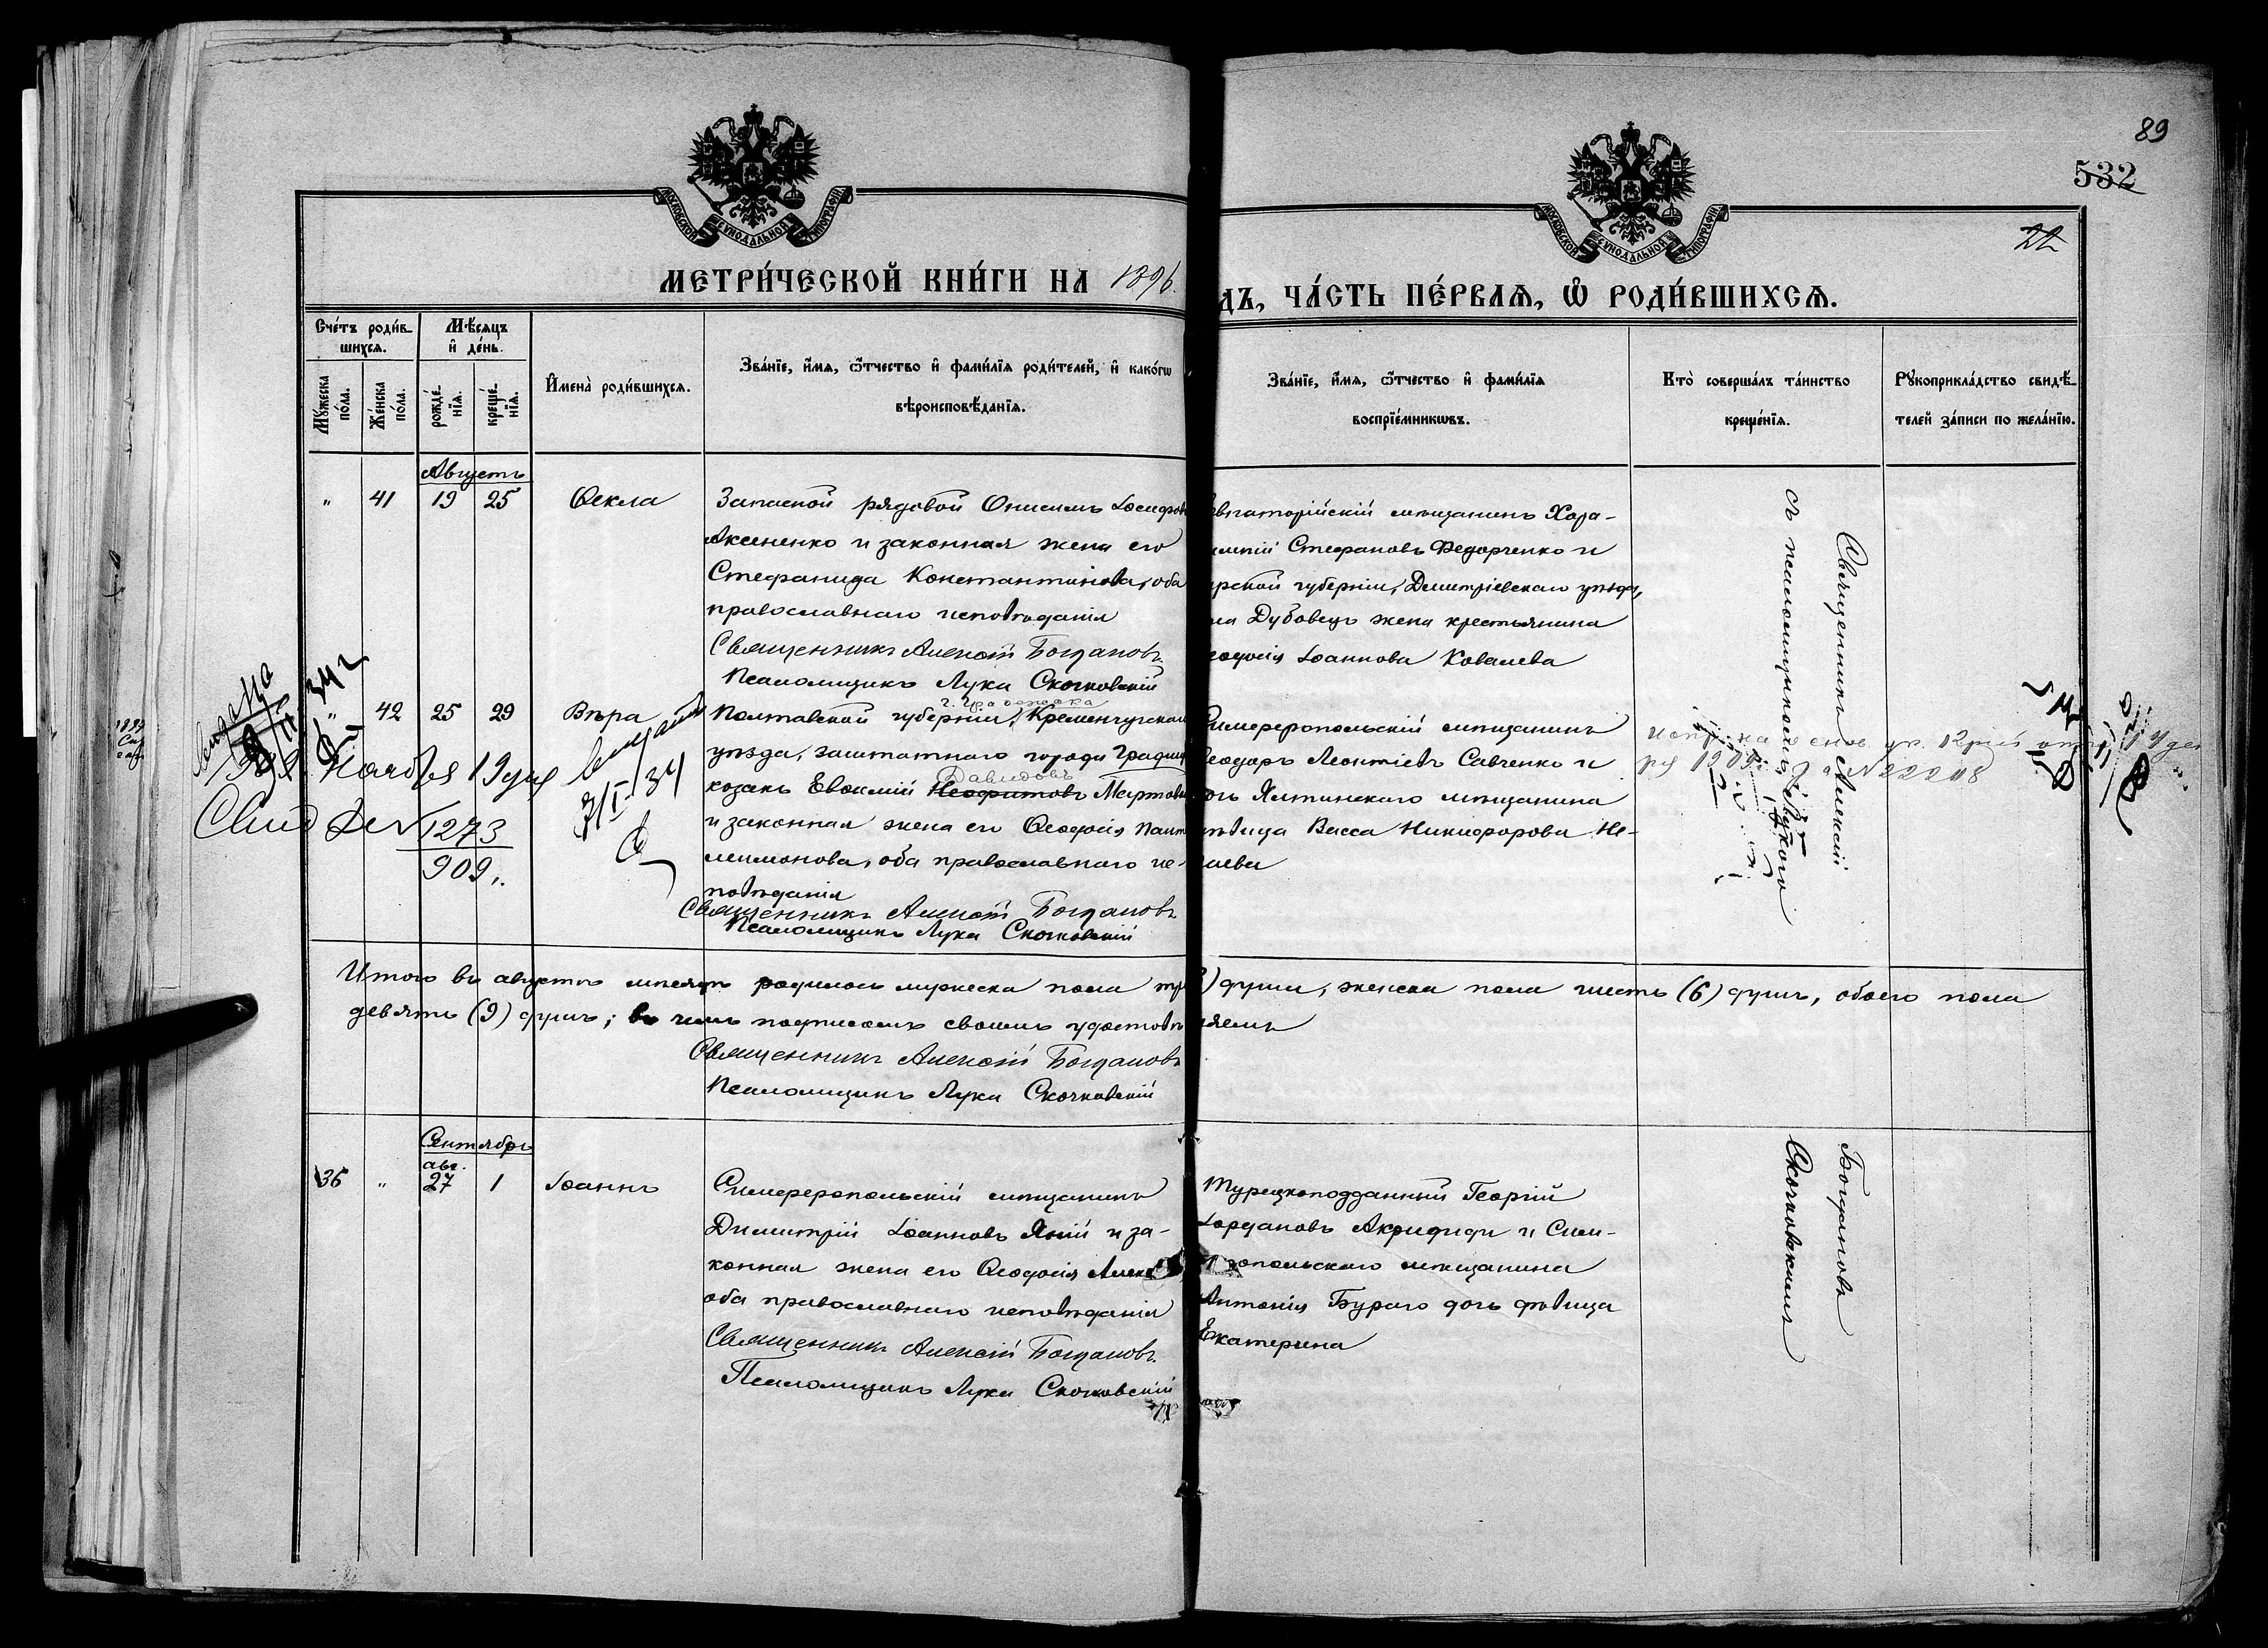 89
532
22
МОСКОВСКОЙ СѴНОДАЛЬНОЙ ТИПОГРАФІИ
МОСКОВСКОЙ СѴНОДАЛЬНОЙ ТИПОГРАФІИ
МЕТРИ́ЧЕСКОЙ КНИ́ГИ НА 1896
ДЪ, ЧА́СТЬ ПЕ́РВАѦ, Ѡ҆ РОДИ́ВШИХСѦ.
Сче́тъ роди́в-
шихсѧ.
Мѣ́сѧцъ
и҆ де́нь.
Мꙋ́жеска
по́ла.
Же́нска
по́ла.
рожде́-
нїѧ.
креще́-
нїѧ.
И҆мена̀ роди́вшихсѧ.
Зва́нїе, и҆́мѧ, ѻ҆́тчество и҆ фами́лїѧ роди́телей, и҆ како́гѡ
вѣроисповѣ́данїѧ.
Зва́нїе, и҆́мѧ, ѻ҆́тчество и҆ фами́лїѧ
воспрїе́мникѡвъ.
Кто̀ соверша́лъ та́инство
креще́нїѧ.
Рꙋкоприкла́дство свидѣ́-
телей за́писи по жела́нїю.
Августъ
" 41 19 25 Ѳекла
Запасной рядовой Онисимъ Іосифов
Аксененко и законная жена его
Стефанида Константинова, оба
православнаго исповѣданія
Священникъ Алексій Богдановъ
Псаломщикъ Лука Скочковскій
Евпаторійскій мѣщанинъ Хара-
лампій Стефановъ Федорченко и
рской губерніи, Дмитріевскаго уѣзда,
на Дубовецъ жена крестьянина
еодосія Іоаннова Ковалева
Священникъ Алексій
съ псаломщикомъ Лукою
" 42 25 29 Вѣра
г. Градижска
Полтавской губерніи, Кременчугскаго
уѣзда, заштатнаго города Градиж
Давидовъ
козакъ Евѳимій Неофитовъ Мартов
и законная жена его Ѳеодосія Пант
леимонова, оба православнаго ис-
повѣданія
Священникъ Алексій Богдановъ
Псаломщикъ Лука Скочковскій
Симферопольскій мѣщанинъ
Ѳеодоръ Леонтіевъ Савченко и
очь Ялтинскаго мѣщанина
дѣвица Васса Никифорова Не-
чаева
Ноября 19 дня
Свид № 1273
909.
3/I-34
1909 № 22208
Итого въ августѣ мѣсяцѣ родилось мужеска пола три (3) души, женска пола шесть (6) душъ, обоего пола
девять (9) душъ; въ чемъ подписомъ своимъ удостовѣряемъ
Священникъ Алексій Богдановъ
Псаломщикъ Лука Скочковскій
Сентябрь
авг.
35 " 27 1 Іоаннъ
Симферопольскій мѣщанинъ
Димитрій Іоанновъ Яній и за-
конная жена его Ѳеодосія Алекс
оба православнаго исповѣданія
Священникъ Алексій Богдановъ
Псаломщикъ Лука Скочковскій
Турецкоподданный Георгій
Іордановъ Акридиди и Сим-
ропольскаго мѣщанина
Антонія Бураго дочь дѣвица
Екатерина
Богдановъ
Скочковскимъ